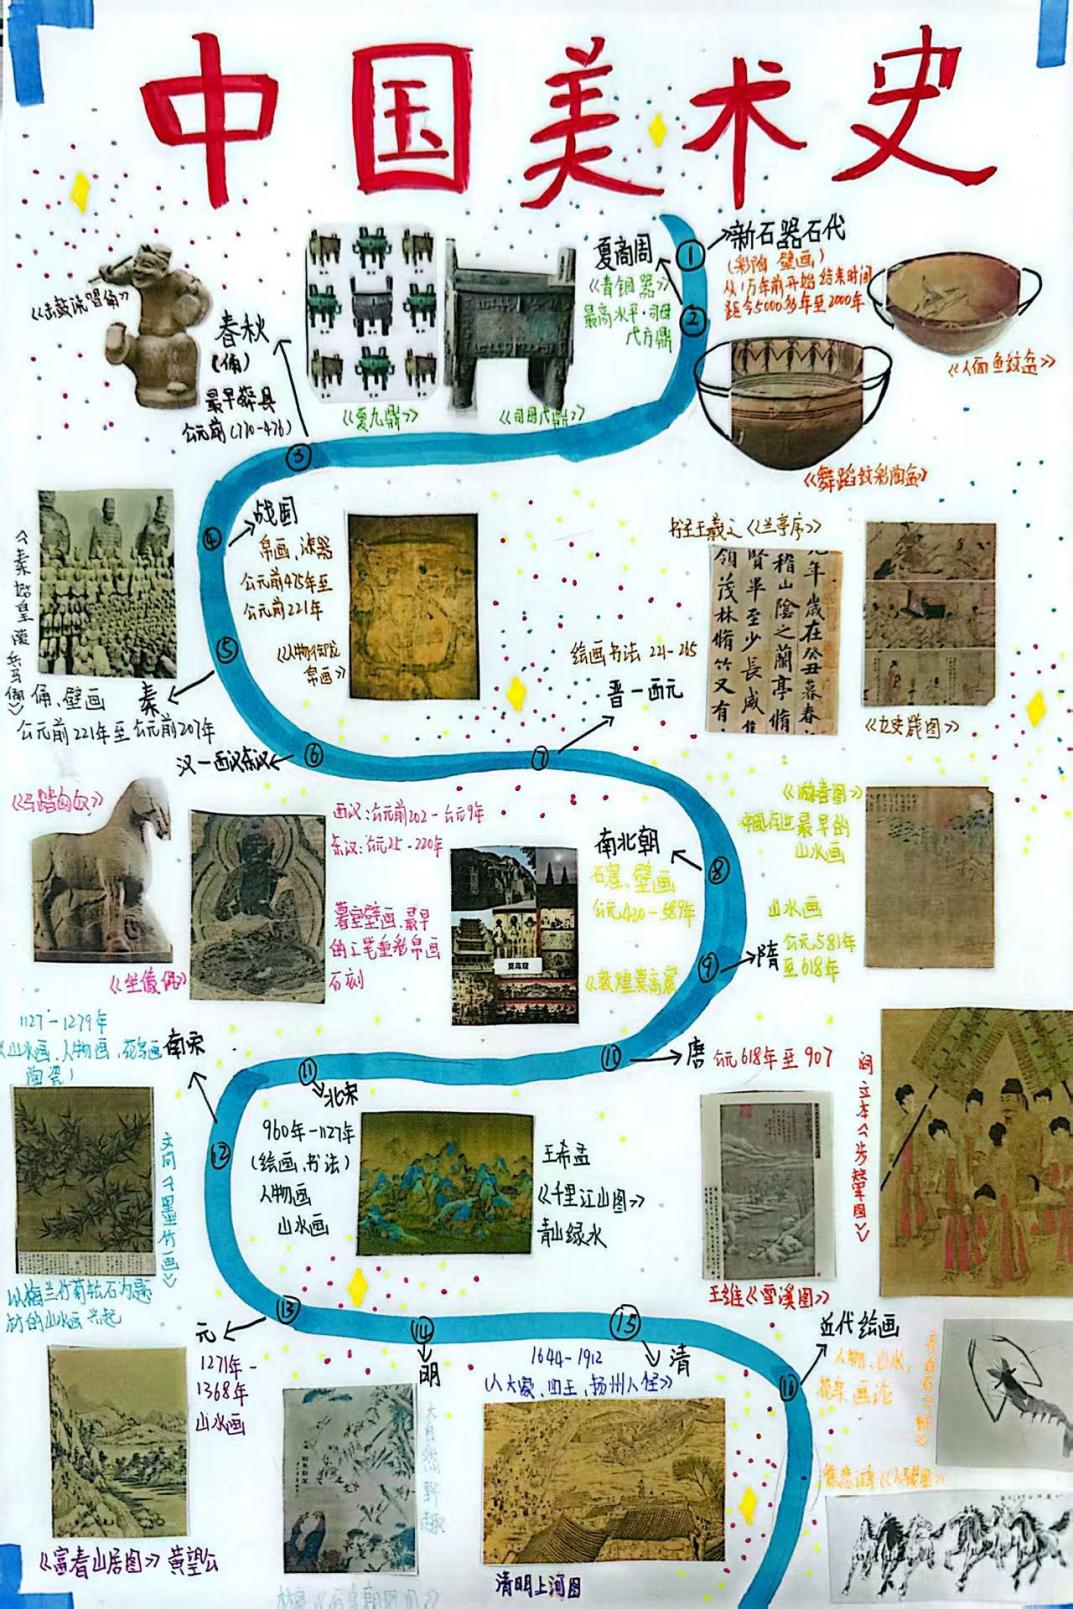 中国美术史
新石器石代
(彩陶 壁画)
从1万年前开始 结束时间
距今5000多年至2000年
《人面鱼纹盆》
《舞蹈纹彩陶盆》
夏商周
《青铜器》
最高水平·司母
代方鼎
《夏九鼎》
《司母代鼎》
《击鼓说唱俑》
春秋
(俑)
公元前(770-476)
战国
帛画、漆器
公元前475年至
公元前221年
帛画》
《秦始皇陵兵马俑》
俑、壁画 秦
公元前221年至公元前207年
书圣王羲之《兰亭序》
年歲在癸丑暮春
稽山陰之蘭亭脩
賢畢至少長咸集
領茂林脩竹又有
绘画书法 221-265
晋一西元
汉一西汉东汉
《马踏匈奴》
西汉:公元前202-公元9年
东汉:公元25-220年
墓室壁画、最早
的工笔重彩帛画
石刻
南北朝
石窟、壁画
公元420-589年
莫高窟
《敦煌莫高窟
《游春图》
最早的
山水画
山水画
隋 公元581年
至618年
唐 公元618年至907
阎立本《步辇图》
王维《雪溪图》
北宋
960年-1127年
(绘画、书法)
人物画
山水画
王希孟
《千里江山图》
青山绿水
1127-1279年
《山水画、人物画、花鸟画 南宋
陶瓷)
文同《墨竹画》
以梅兰竹菊枯石为题
材的山水画兴起
元
1271年-
1368年
山水画
《富春山居图》 黄望公
明
清
1644-1912
《八大家、四王、扬州八怪》
清明上河图
近代绘画
人物、山水、
花鸟、画论